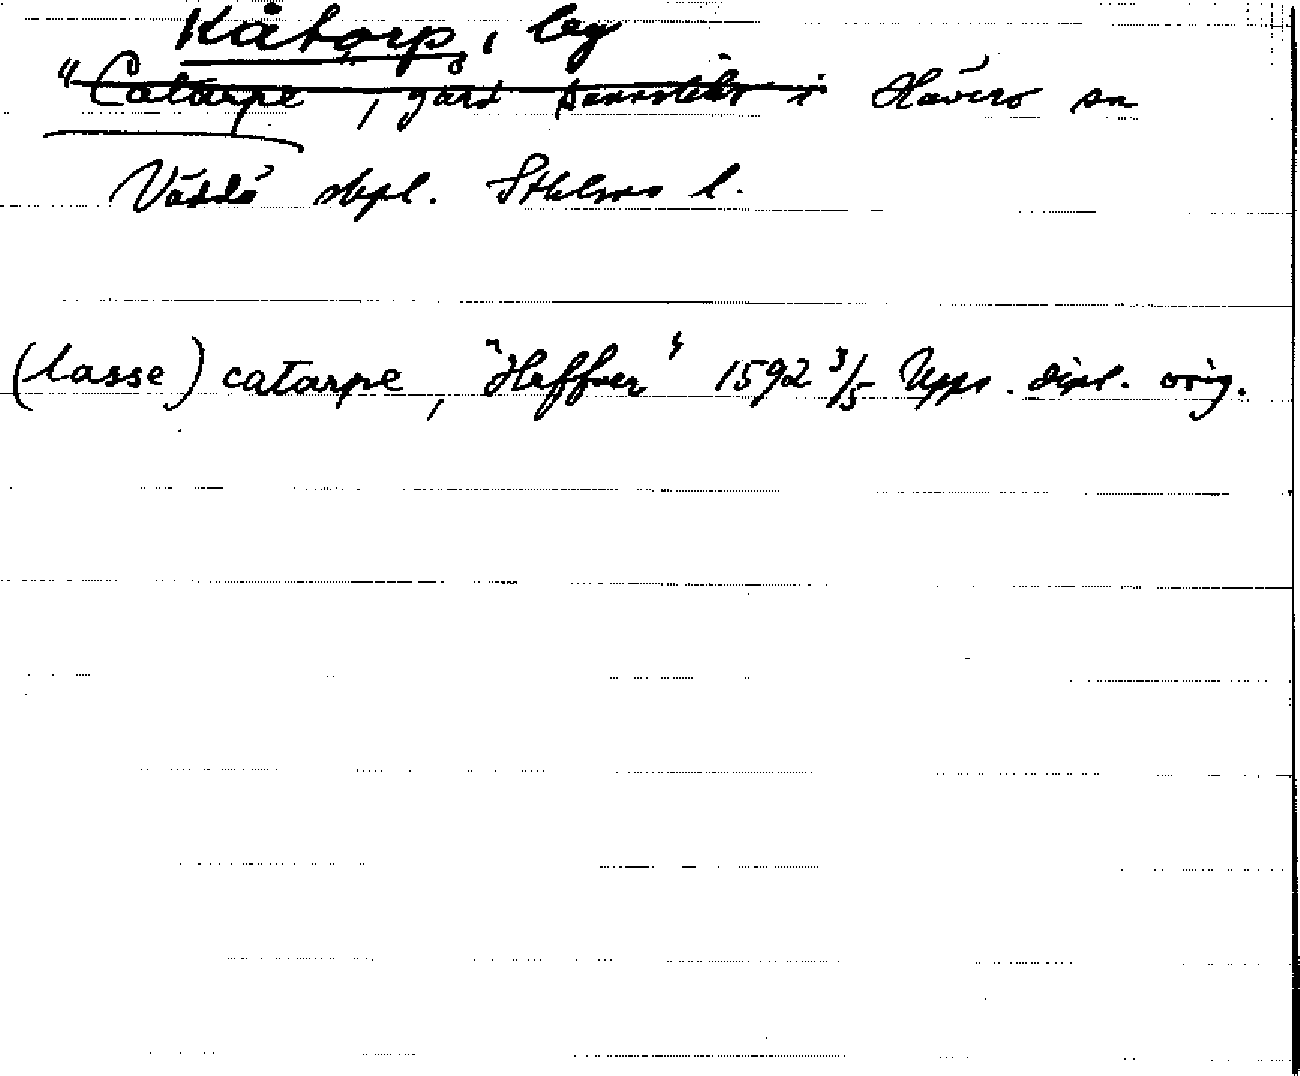 Kåtorp, by
"Catarpe, gård sannolikt i Hävero sn
Väddö skpl. Sthlms l.
(lasse) catarpe, "Haffver" 1592 3/5 Upps. dipl. orig.